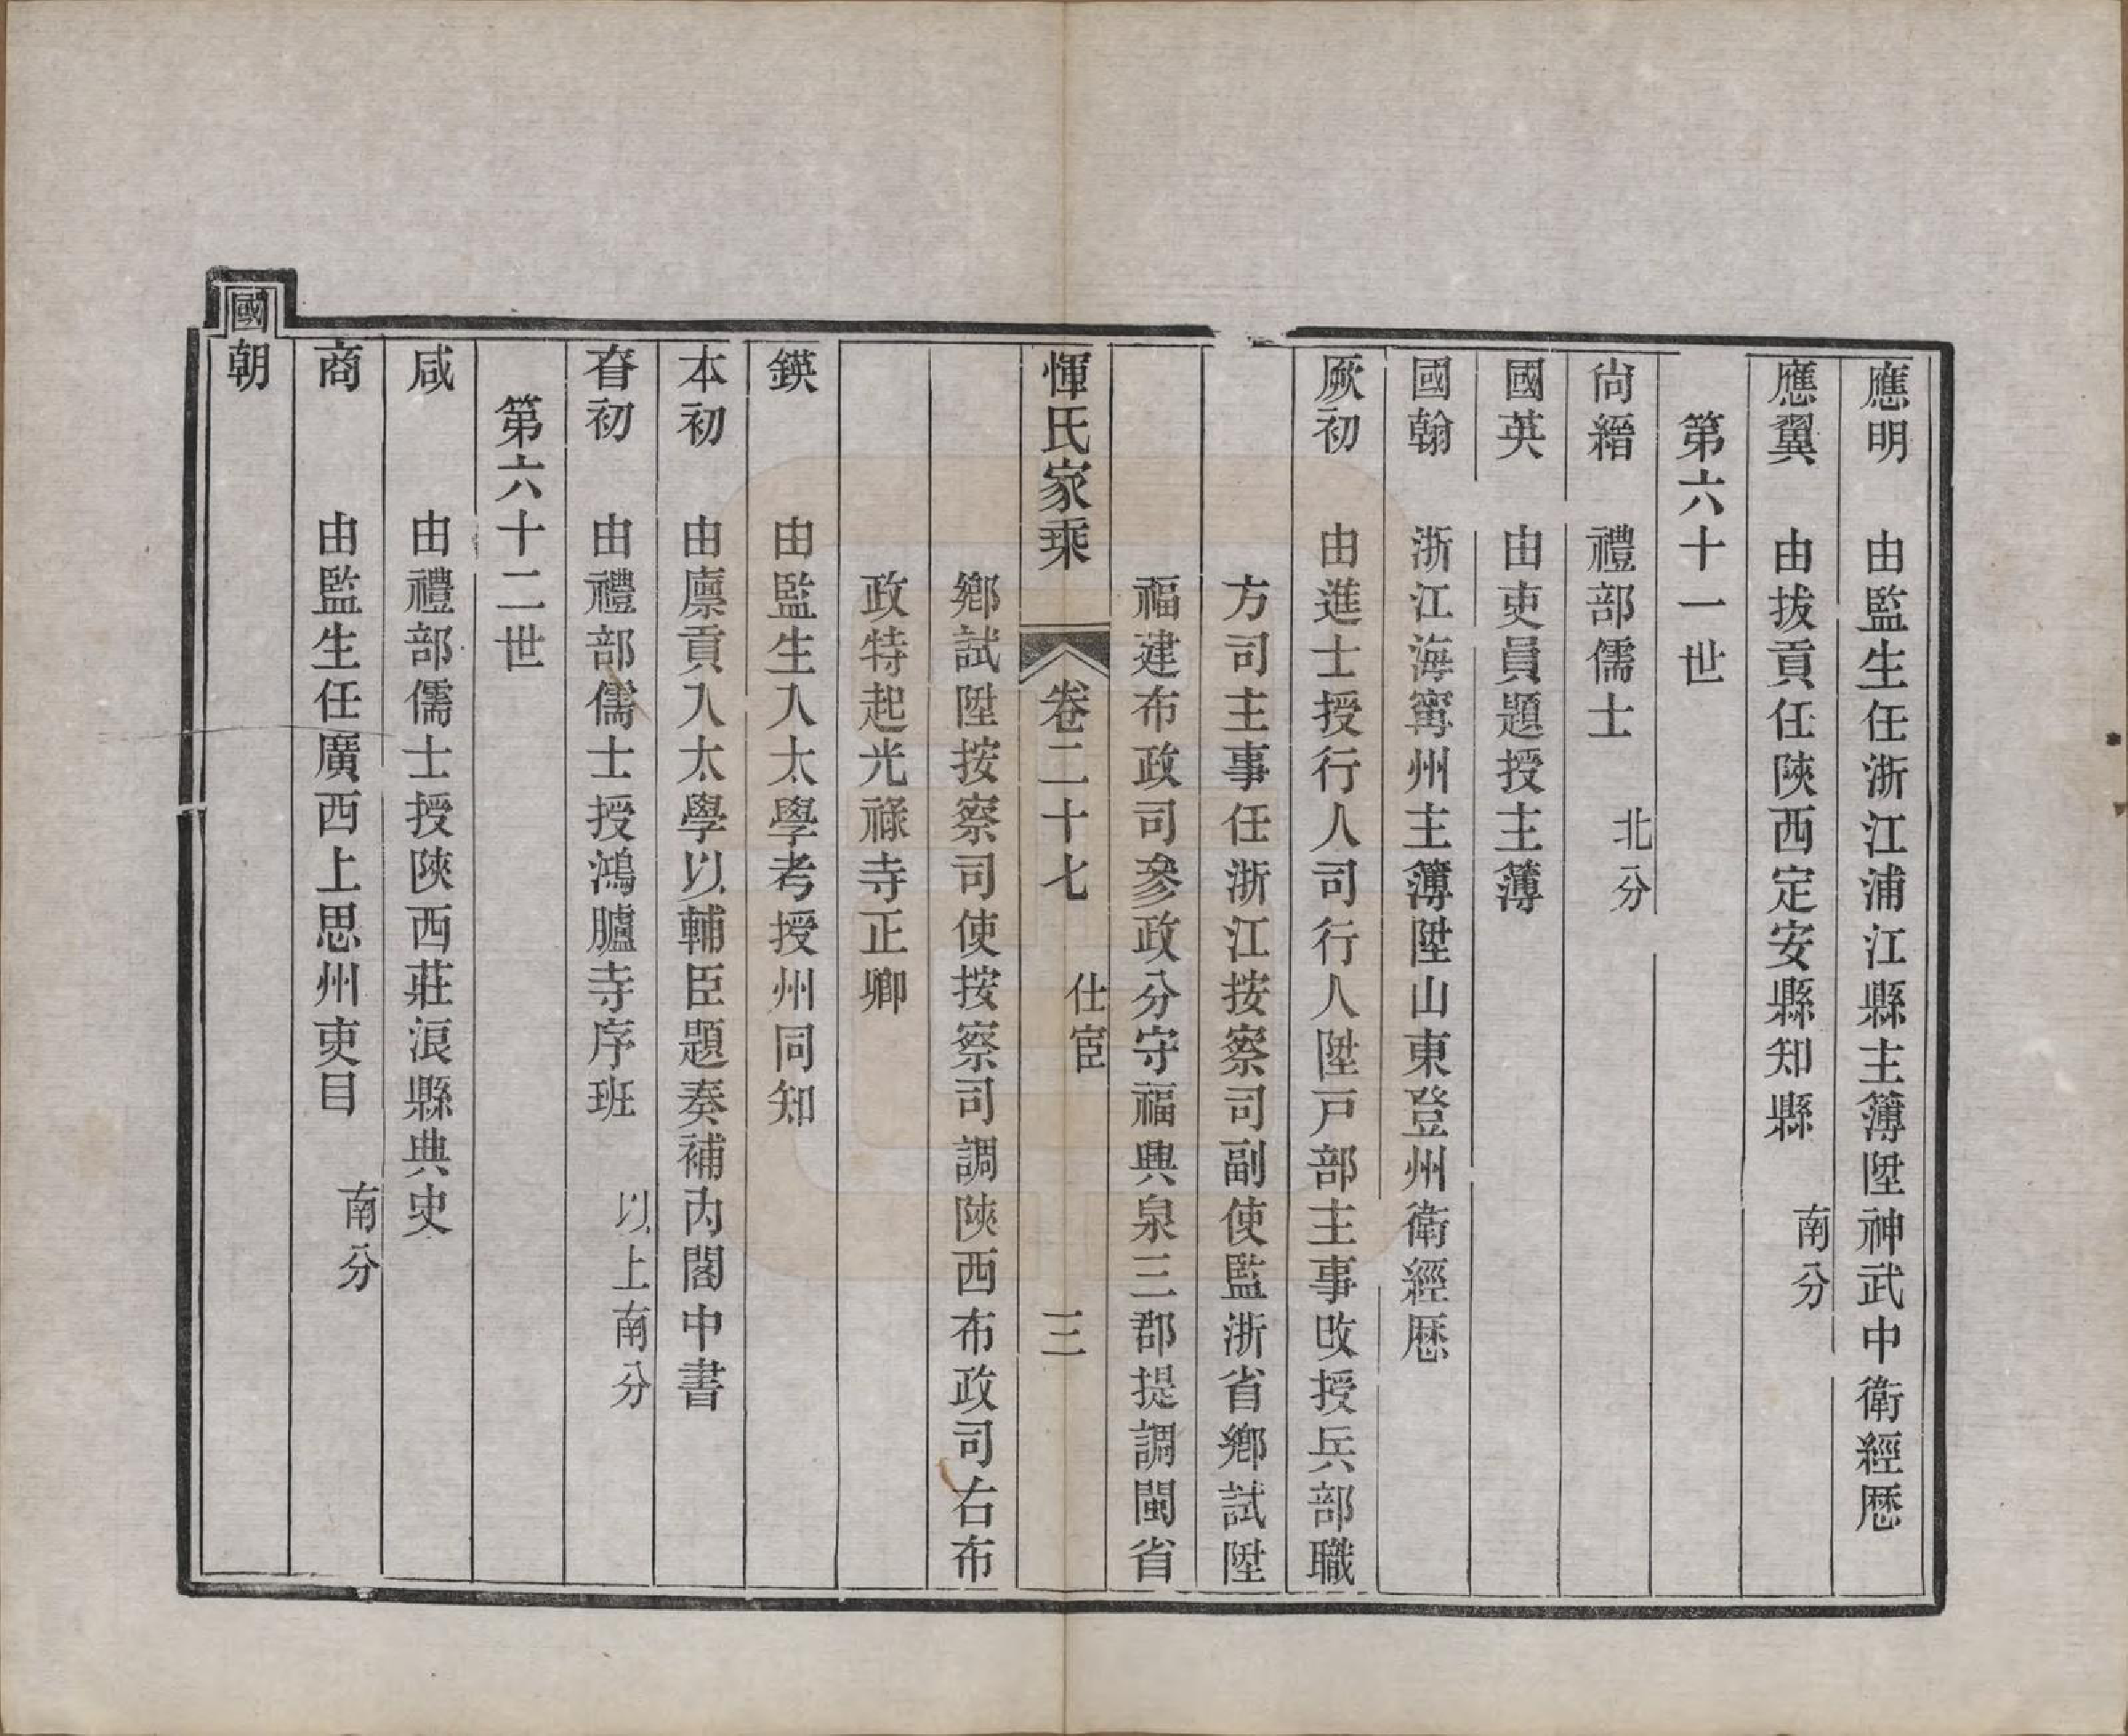 應明　由監生任浙江浦江縣主簿陞神武中衛經歷
應翼　由拔貢任陝西定安縣知縣　南分
第六十一世
尙縉　禮部儒士　北分
國英　由吏員題授主簿
國翰　浙江海寗州主簿陞山東登州衛經歷
厥初　由進士授行人司行人陞戸部主事改授兵部職
方司主事任浙江按察司副使監浙省鄉試陞
福建布政司參政分守福興泉三郡提調閩省
惲氏家乘　卷二十七　仕宦　三
鄉試陞按察司使按察司調陝西布政司右布
政特起光祿寺正卿
鍈　由監生入太學考授州同知
本初　由廩貢入太學以輔臣題奏補內閣中書
㫺初　由禮部儒士授鴻臚寺序班　以上南分
第六十二世
咸　由禮部儒士授陝西莊浪縣典史
商　由監生任廣西上思州吏目　南分
國朝